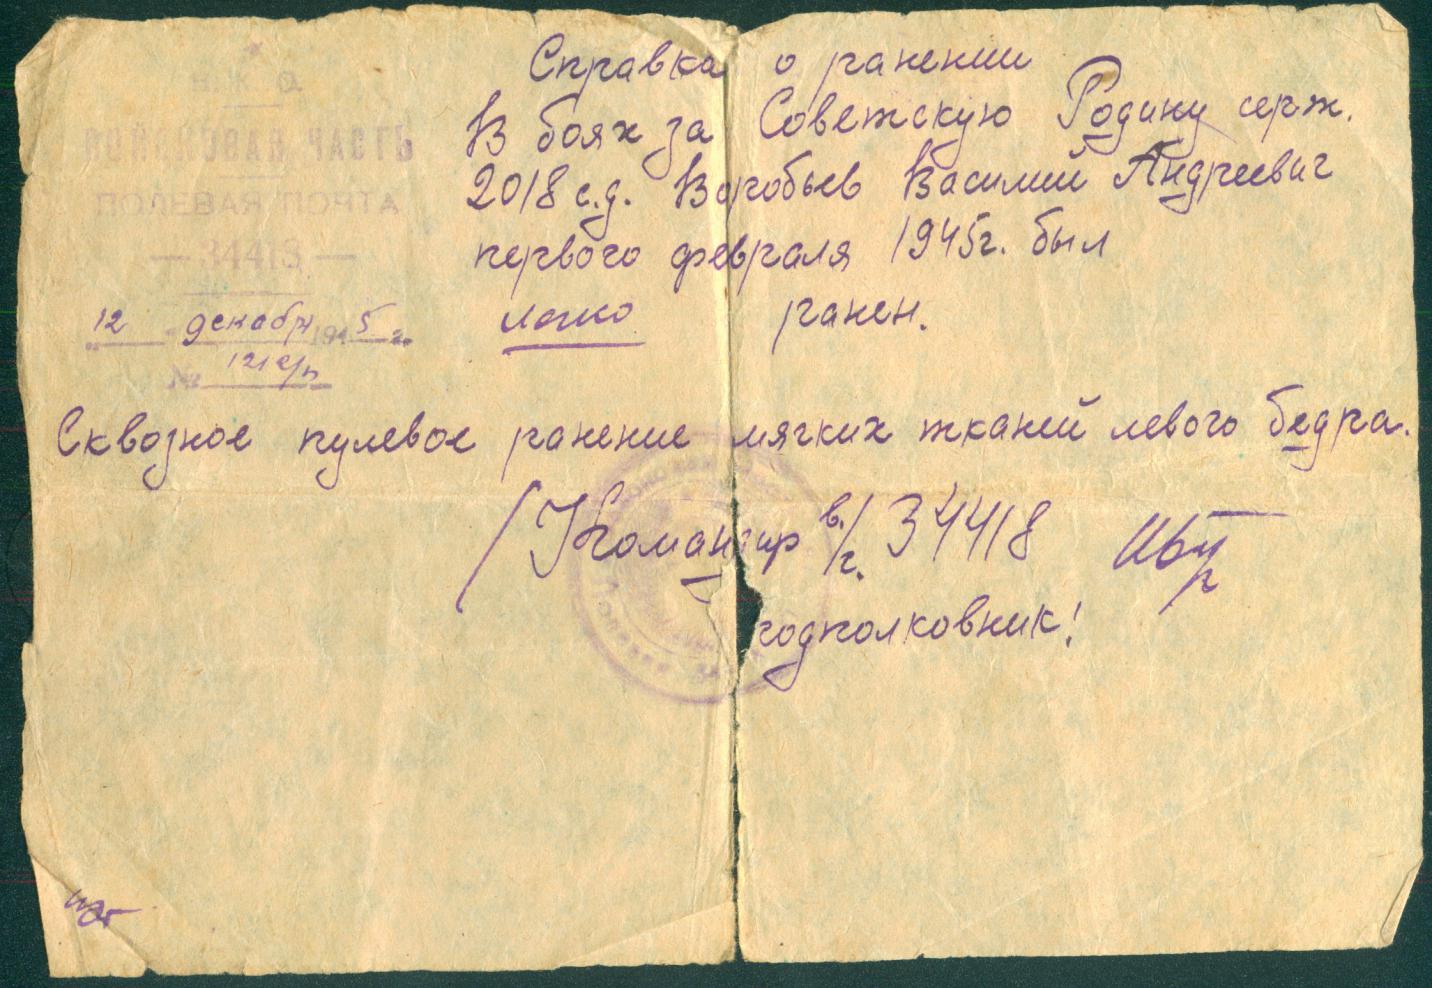 Н.К.О.
ВОЙСКОВАЯ ЧАСТЬ
ПОЛЕВАЯ ПОЧТА
— 34418 —
12 декабр 1945 г.
№ 121
Справка о ранении
В боях за Советскую Родину серж.
2018 с.д. Воробьев Василий Андреевич
первого февраля 1945г. был
легко ранен.
Сквозное пулевое ранение мягких тканей левого бедра.
/ Командир в/ч. 34418
подполковник!